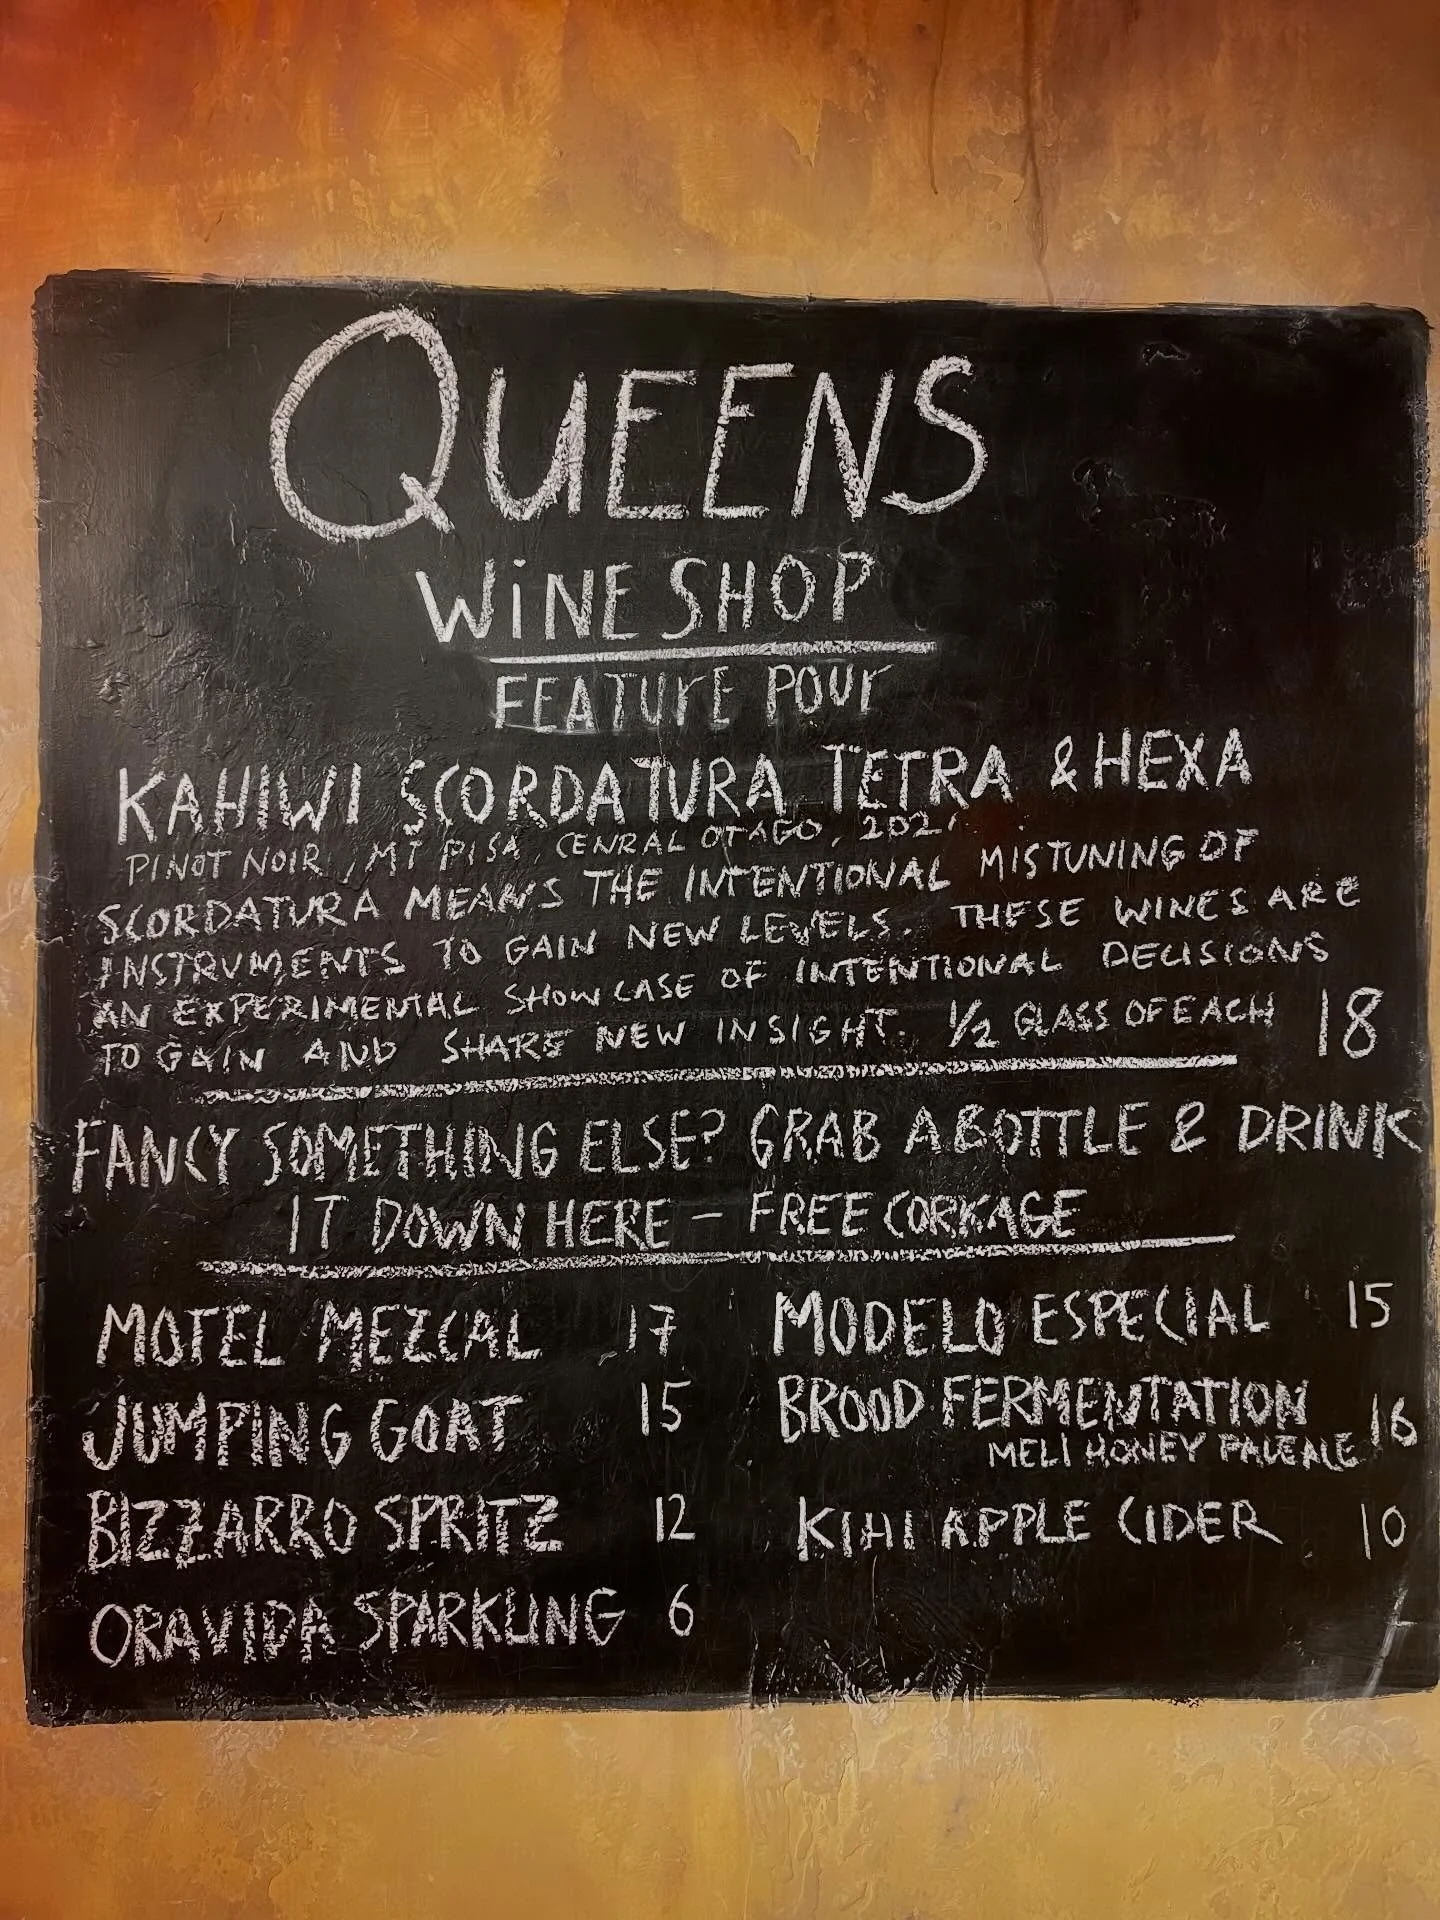 QUEENS
WINE SHOP
FEATURE POUR
KAHIWI SCORDATURA TETRA & HEXA
PINOT NOIR, MT PISA, CENRAL OTAGO, 2021
SCORDATURA MEANS THE INTENTIONAL MISTUNING OF
INSTRUMENTS TO GAIN NEW LEVELS. THESE WINES ARE
AN EXPERIMENTAL SHOWCASE OF INTENTIONAL DECISIONS
TO GAIN AND SHARE NEW INSIGHT. 1/2 GLASS OF EACH 18
FANCY SOMETHING ELSE? GRAB A BOTTLE & DRINK
IT DOWN HERE - FREE CORKAGE
MOTEL MEZCAL 17
JUMPING GOAT 15
BIZZARRO SPRITZ 12
ORAVIDA SPARKLING 6
MODELO ESPECIAL 15
BROOD FERMENTATION 16
MELI HONEY PALE ALE
KIHI APPLE CIDER 10